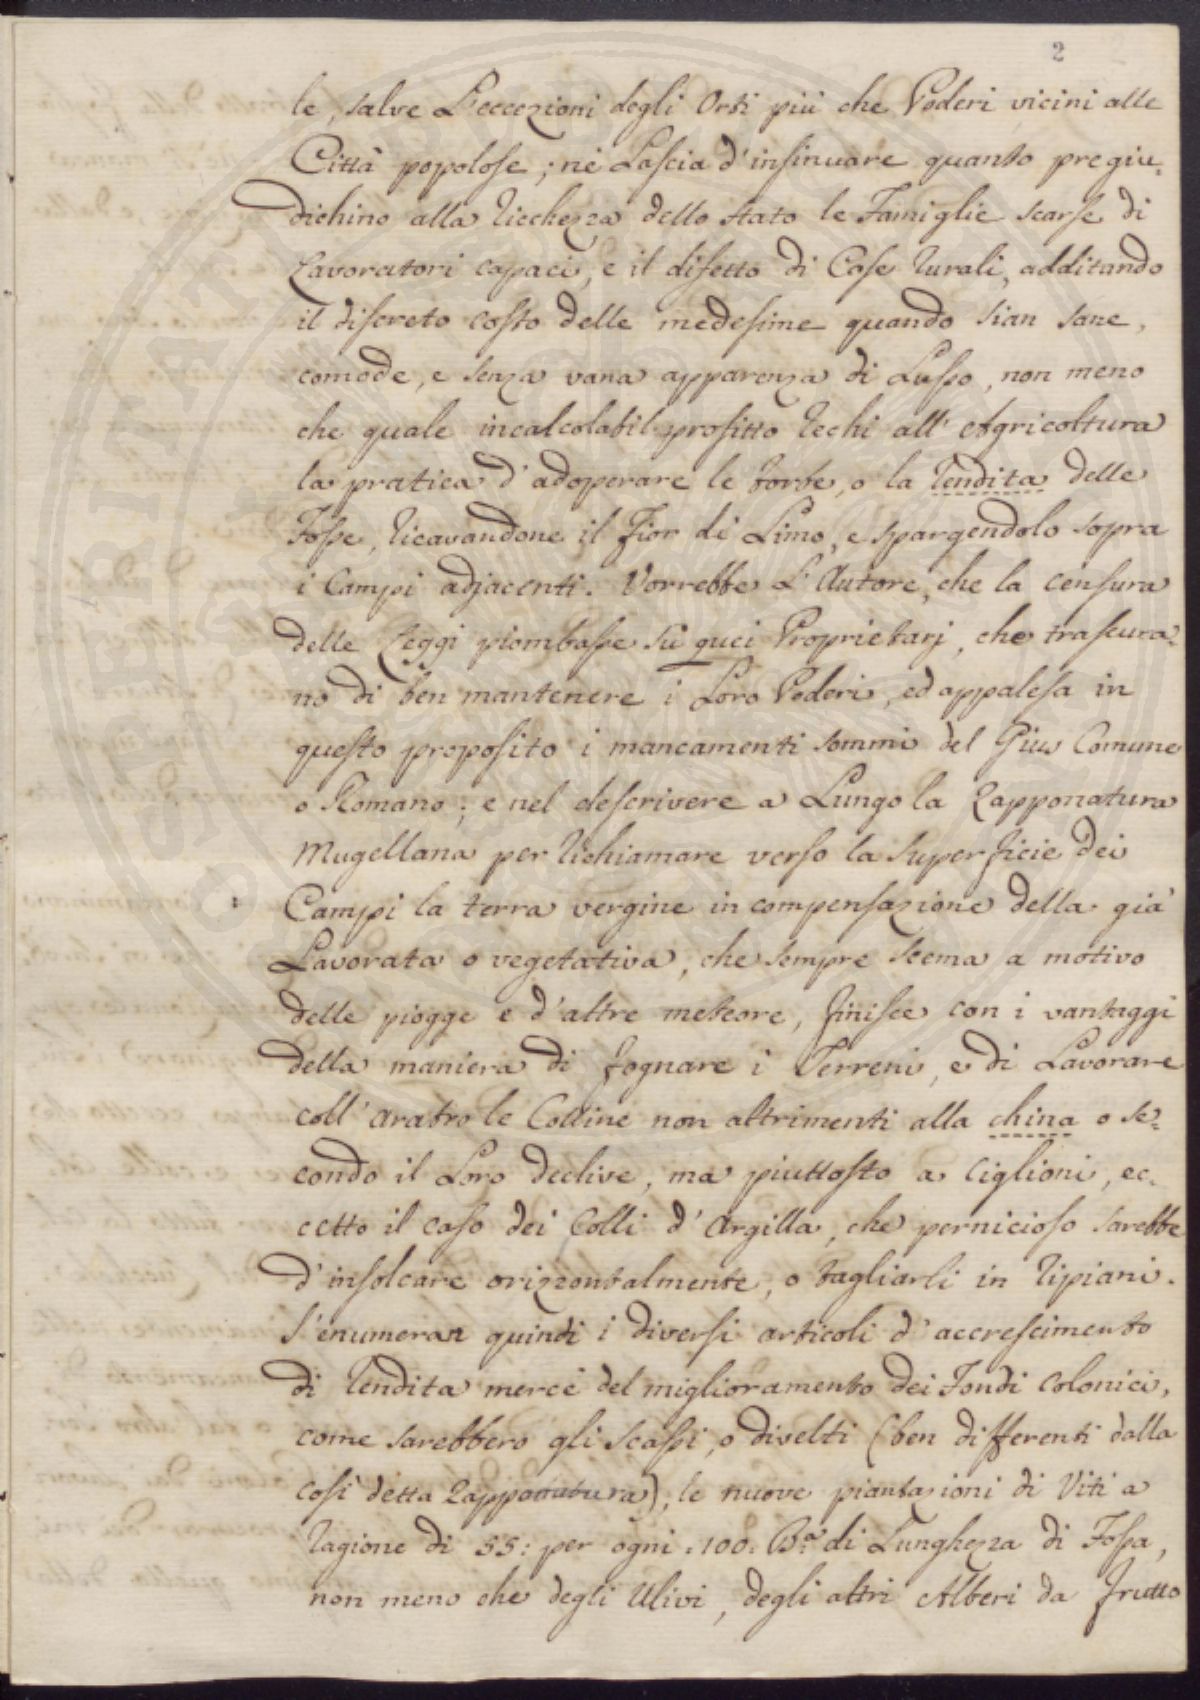 2
le, salve L'eccezioni degli Orti più che Poderi vicini alle
Città popolose; nè Lascia d'insinuare quanto pregiu-
dichino alla ricchezza dello stato le Famiglie scarse di
Lavoratori capaci, e il difetto di Case rurali, additando
il discreto costo delle medesime quando sian sane,
comode, e senza vana apparenza di Lusso, non meno
che quale incalcolabil profitto rechi all'Agricoltura
la pratica d'adoperare le torbe, o la rendita delle
Fosse, ricavandone il Fior di Limo, e spargendolo sopra
i Campi adjacenti. Vorrebbe L'Autore, che la censura
delle Leggi piombasse su quei Proprietarj, che trascura-
no di ben mantenere i Loro Poderi, ed appalesa in
questo proposito i mancamenti sommi del Gius Comune
o Romano; e nel descrivere a Lungo la Zapponatura
Mugellana per richiamare verso la superficie dei
Campi la terra vergine in compensazione della già
Lavorata o vegetativa, che sempre scema a motivo
delle piogge e d'altre meteore, finisce con i vantaggi
della maniera di fognare i Terreni, e di Lavorare
coll'aratro le Colline non altrimenti alla china o se-
condo il Loro declive, ma piuttosto a Ciglioni, ec-
cetto il caso dei Colli d'Argilla, che pernicioso sarebbe
d'insolcare orizzontalmente, o tagliarli in ripiani.
S'enumeran quindi i diversi articoli d'accrescimento
di rendita mercè del miglioramento dei Fondi colonici,
come sarebbero gli scassi, o divelti (ben differenti dalla
così detta Zappanatura), le nuove piantazioni di Viti a
ragione di 55: per ogni 100. B.a di Lunghezza di Fossa,
non meno che degli Ulivi, degli altri Alberi da frutto